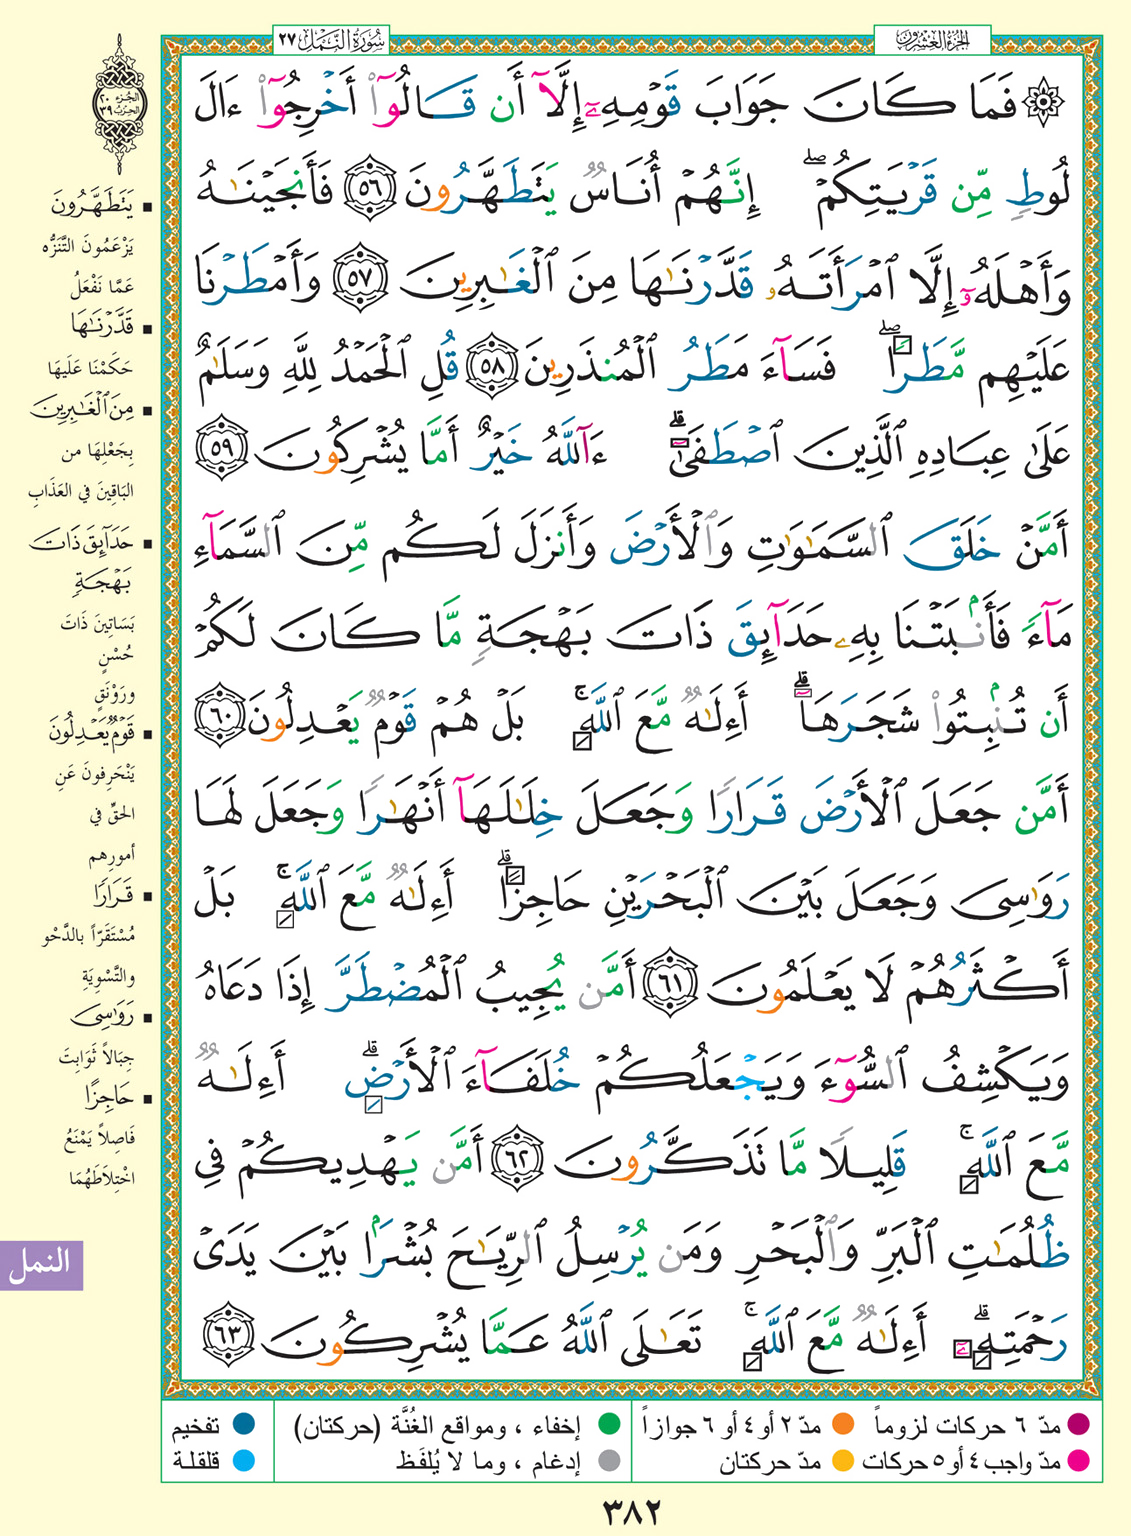 سُورَةُ النَّمْلِ ٢٧
الجزء العشرون
الجزء ٢٠
الحزب ٣٩
۞ فَمَا كَانَ جَوَابَ قَوْمِهِۦٓ إِلَّآ أَن قَالُوٓا۟ أَخْرِجُوٓا۟ ءَالَ
لُوطٍ مِّن قَرْيَتِكُمْ ۖ إِنَّهُمْ أُنَاسٌ يَتَطَهَّرُونَ ٥٦ فَأَنجَيْنَـٰهُ
وَأَهْلَهُۥٓ إِلَّا ٱمْرَأَتَهُۥ قَدَّرْنَـٰهَا مِنَ ٱلْغَـٰبِرِينَ ٥٧ وَأَمْطَرْنَا
عَلَيْهِم مَّطَرًا ۖ فَسَآءَ مَطَرُ ٱلْمُنذَرِينَ ٥٨ قُلِ ٱلْحَمْدُ لِلَّهِ وَسَلَـٰمٌ
عَلَىٰ عِبَادِهِ ٱلَّذِينَ ٱصْطَفَىٰٓ ۗ ءَآللَّهُ خَيْرٌ أَمَّا يُشْرِكُونَ ٥٩
أَمَّنْ خَلَقَ ٱلسَّمَـٰوَٰتِ وَٱلْأَرْضَ وَأَنزَلَ لَكُم مِّنَ ٱلسَّمَآءِ
مَآءً فَأَنۢبَتْنَا بِهِۦ حَدَآئِقَ ذَاتَ بَهْجَةٍ مَّا كَانَ لَكُمْ
أَن تُنۢبِتُوا۟ شَجَرَهَآ ۗ أَءِلَـٰهٌ مَّعَ ٱللَّهِ ۚ بَلْ هُمْ قَوْمٌ يَعْدِلُونَ ٦٠
أَمَّن جَعَلَ ٱلْأَرْضَ قَرَارًا وَجَعَلَ خِلَـٰلَهَآ أَنْهَـٰرًا وَجَعَلَ لَهَا
رَوَٰسِىَ وَجَعَلَ بَيْنَ ٱلْبَحْرَيْنِ حَاجِزًا ۗ أَءِلَـٰهٌ مَّعَ ٱللَّهِ ۚ بَلْ
أَكْثَرُهُمْ لَا يَعْلَمُونَ ٦١ أَمَّن يُجِيبُ ٱلْمُضْطَرَّ إِذَا دَعَاهُ
وَيَكْشِفُ ٱلسُّوٓءَ وَيَجْعَلُكُمْ خُلَفَآءَ ٱلْأَرْضِ ۗ أَءِلَـٰهٌ
مَّعَ ٱللَّهِ ۚ قَلِيلًا مَّا تَذَكَّرُونَ ٦٢ أَمَّن يَهْدِيكُمْ فِى
ظُلُمَـٰتِ ٱلْبَرِّ وَٱلْبَحْرِ وَمَن يُرْسِلُ ٱلرِّيَـٰحَ بُشْرًۢا بَيْنَ يَدَىْ
رَحْمَتِهِۦٓ ۗ أَءِلَـٰهٌ مَّعَ ٱللَّهِ ۚ تَعَـٰلَى ٱللَّهُ عَمَّا يُشْرِكُونَ ٦٣
▪ يَتَطَهَّرُونَ
يَزْعُمُونَ التَّنَزُّه
عَمَّا نَفْعَلُ
▪ قَدَّرْنَـٰهَا
حَكَمْنَا عَلَيهَا
▪ مِنَ ٱلْغَـٰبِرِينَ
بِجَعْلِهَا من
البَاقِينَ في العَذَابِ
▪ حَدَآئِقَ ذَاتَ
بَهْجَةٍ
بَسَاتِينَ ذَاتَ
حُسْنٍ
ورَوْنَقٍ
▪ قَوْمٌ يَعْدِلُونَ
يَنْحَرِفونَ عَنِ
الحَقِّ في
أمورِهم
▪ قَرَارًا
مُسْتَقَرّاً بالدَّحْو
والتَّسْوِيَة
▪ رَوَٰسِىَ
جِبَالاً ثَوَابِتَ
▪ حَاجِزًا
فَاصِلاً يَمْنَعُ
اخْتِلاَطَهُمَا
النمل
مدّ ٦ حركات لزوماً
مدّ ٢ أو ٤ أو ٦ جوازاً
إخفاء ، ومواقع الغُنَّة (حركتان)
تفخيم
مدّ واجب ٤ أو ٥ حركات
مدّ حركتان
إدغام ، وما لا يُلفَظ
قلقلة
٣٨٢